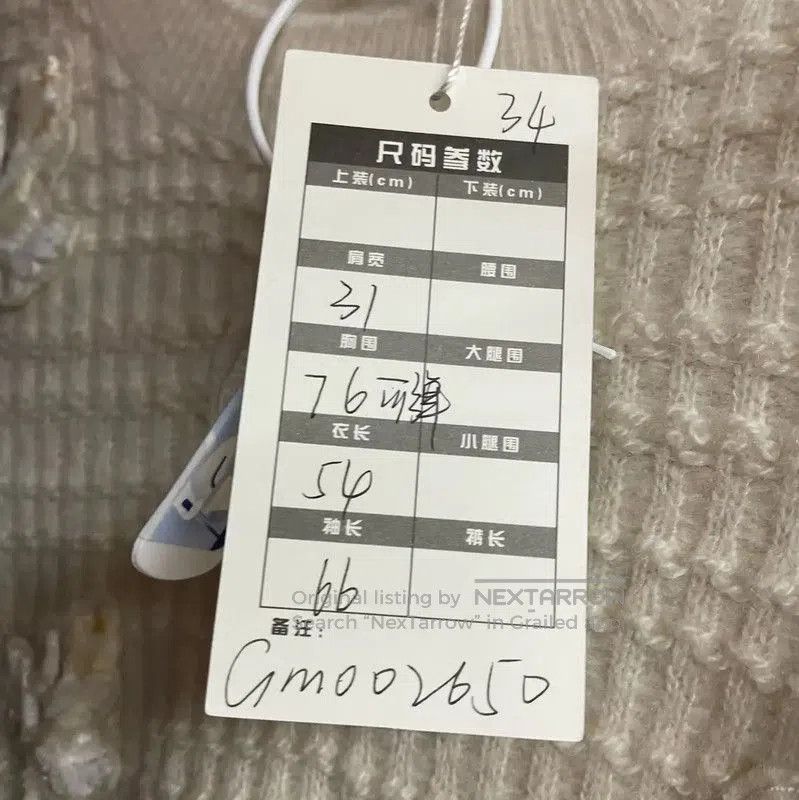 34
尺码参数
上装(cm) 下装(cm)
肩宽 腰围
31
胸围 大腿围
76 可弹
衣长 小腿围
54
袖长 裤长
66
Original listing by NEXTARROW
Search "NexTarrow" in Grailed
备注:
GM002650